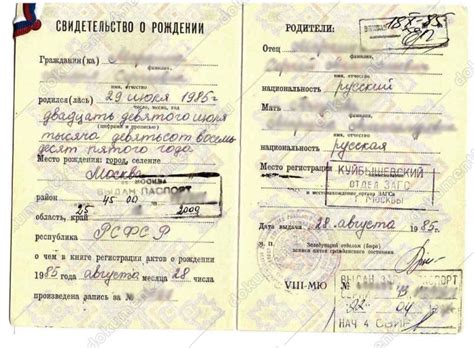 СВИДЕТЕЛЬСТВО О РОЖДЕНИИ
Гражданин(ка)
фамилия,
имя, отчество
родился(лась) 29 июля 1985г
число, месяц, год
(цифрами и прописью)
двадцать девятого июля
тысяча девятьсот восемь
десят пятого года
Место рождения: город, селение
Москва
МОСКВА
ВЫДАН ПАСПОРТ
район
45 00
25
2009
область, край
республика РСФСР
о чем в книге регистрации актов о рождении
1985 года августа месяца 28 числа
произведена запись за №
РОДИТЕЛИ:
18
85
Отец
фамилия,
имя, отчество
национальность русский
Мать
имя, отчество
национальность русская
Место регистрации
КУЙБЫШЕВСКИЙ
ОТДЕЛ ЗАГС
МОСКВЫ
Дата выдачи 28 августа 1985г.
М. П.
Заведующий отделом (бюро)
записи актов гражданского состояния
VIII-МЮ №
ПАСПОРТ
22 04
НАЧ 4